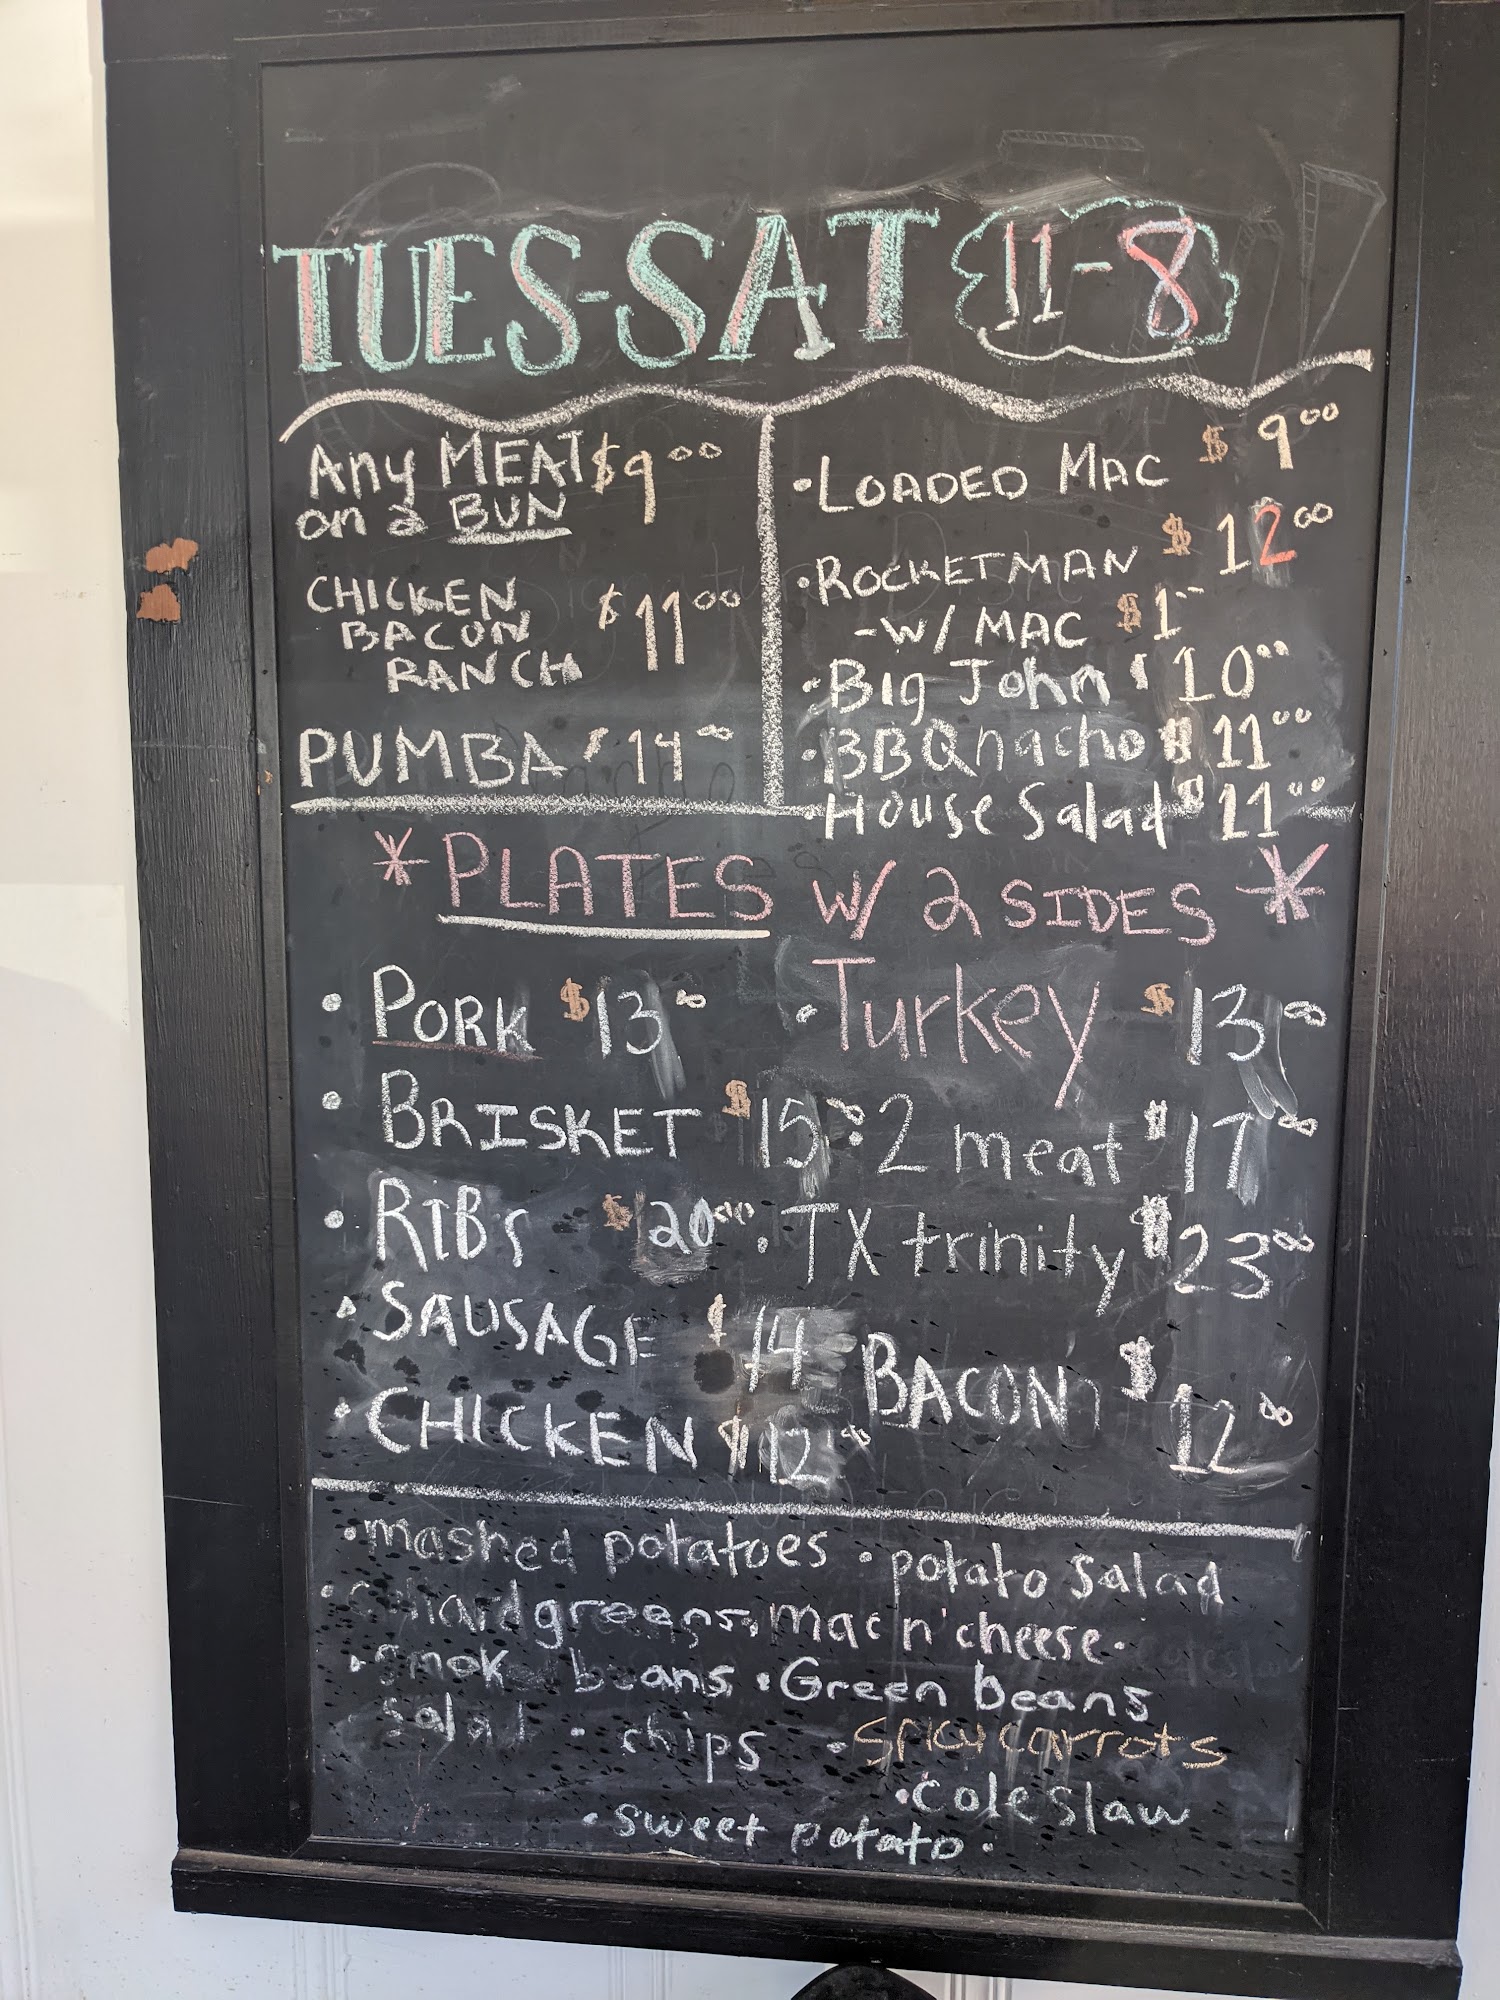 TUES-SAT 11-8
Any MEAT $9.00
on a BUN
CHICKEN $11.00
BACON
RANCH
PUMBA $14.00
•LOADED MAC $9.00
•ROCKETMAN $12.00
-W/MAC $1
•Big John $10.00
•BBQ nacho $11.00
•House Salad $11.00
*PLATES W/ 2 SIDES*
• PORK $13.00
• Turkey $13.00
• BRISKET $15.00
: 2 meat $17.00
• RIBS $20.00
• TX trinity $23.00
• SAUSAGE $14
BACON $12.00
• CHICKEN $12.00
•mashed potatoes •potato Salad
•collard greens, mac n' cheese•
•Smoke beans •Green beans
Salad • chips •Spicy carrots
•Coleslaw
•Sweet potato•